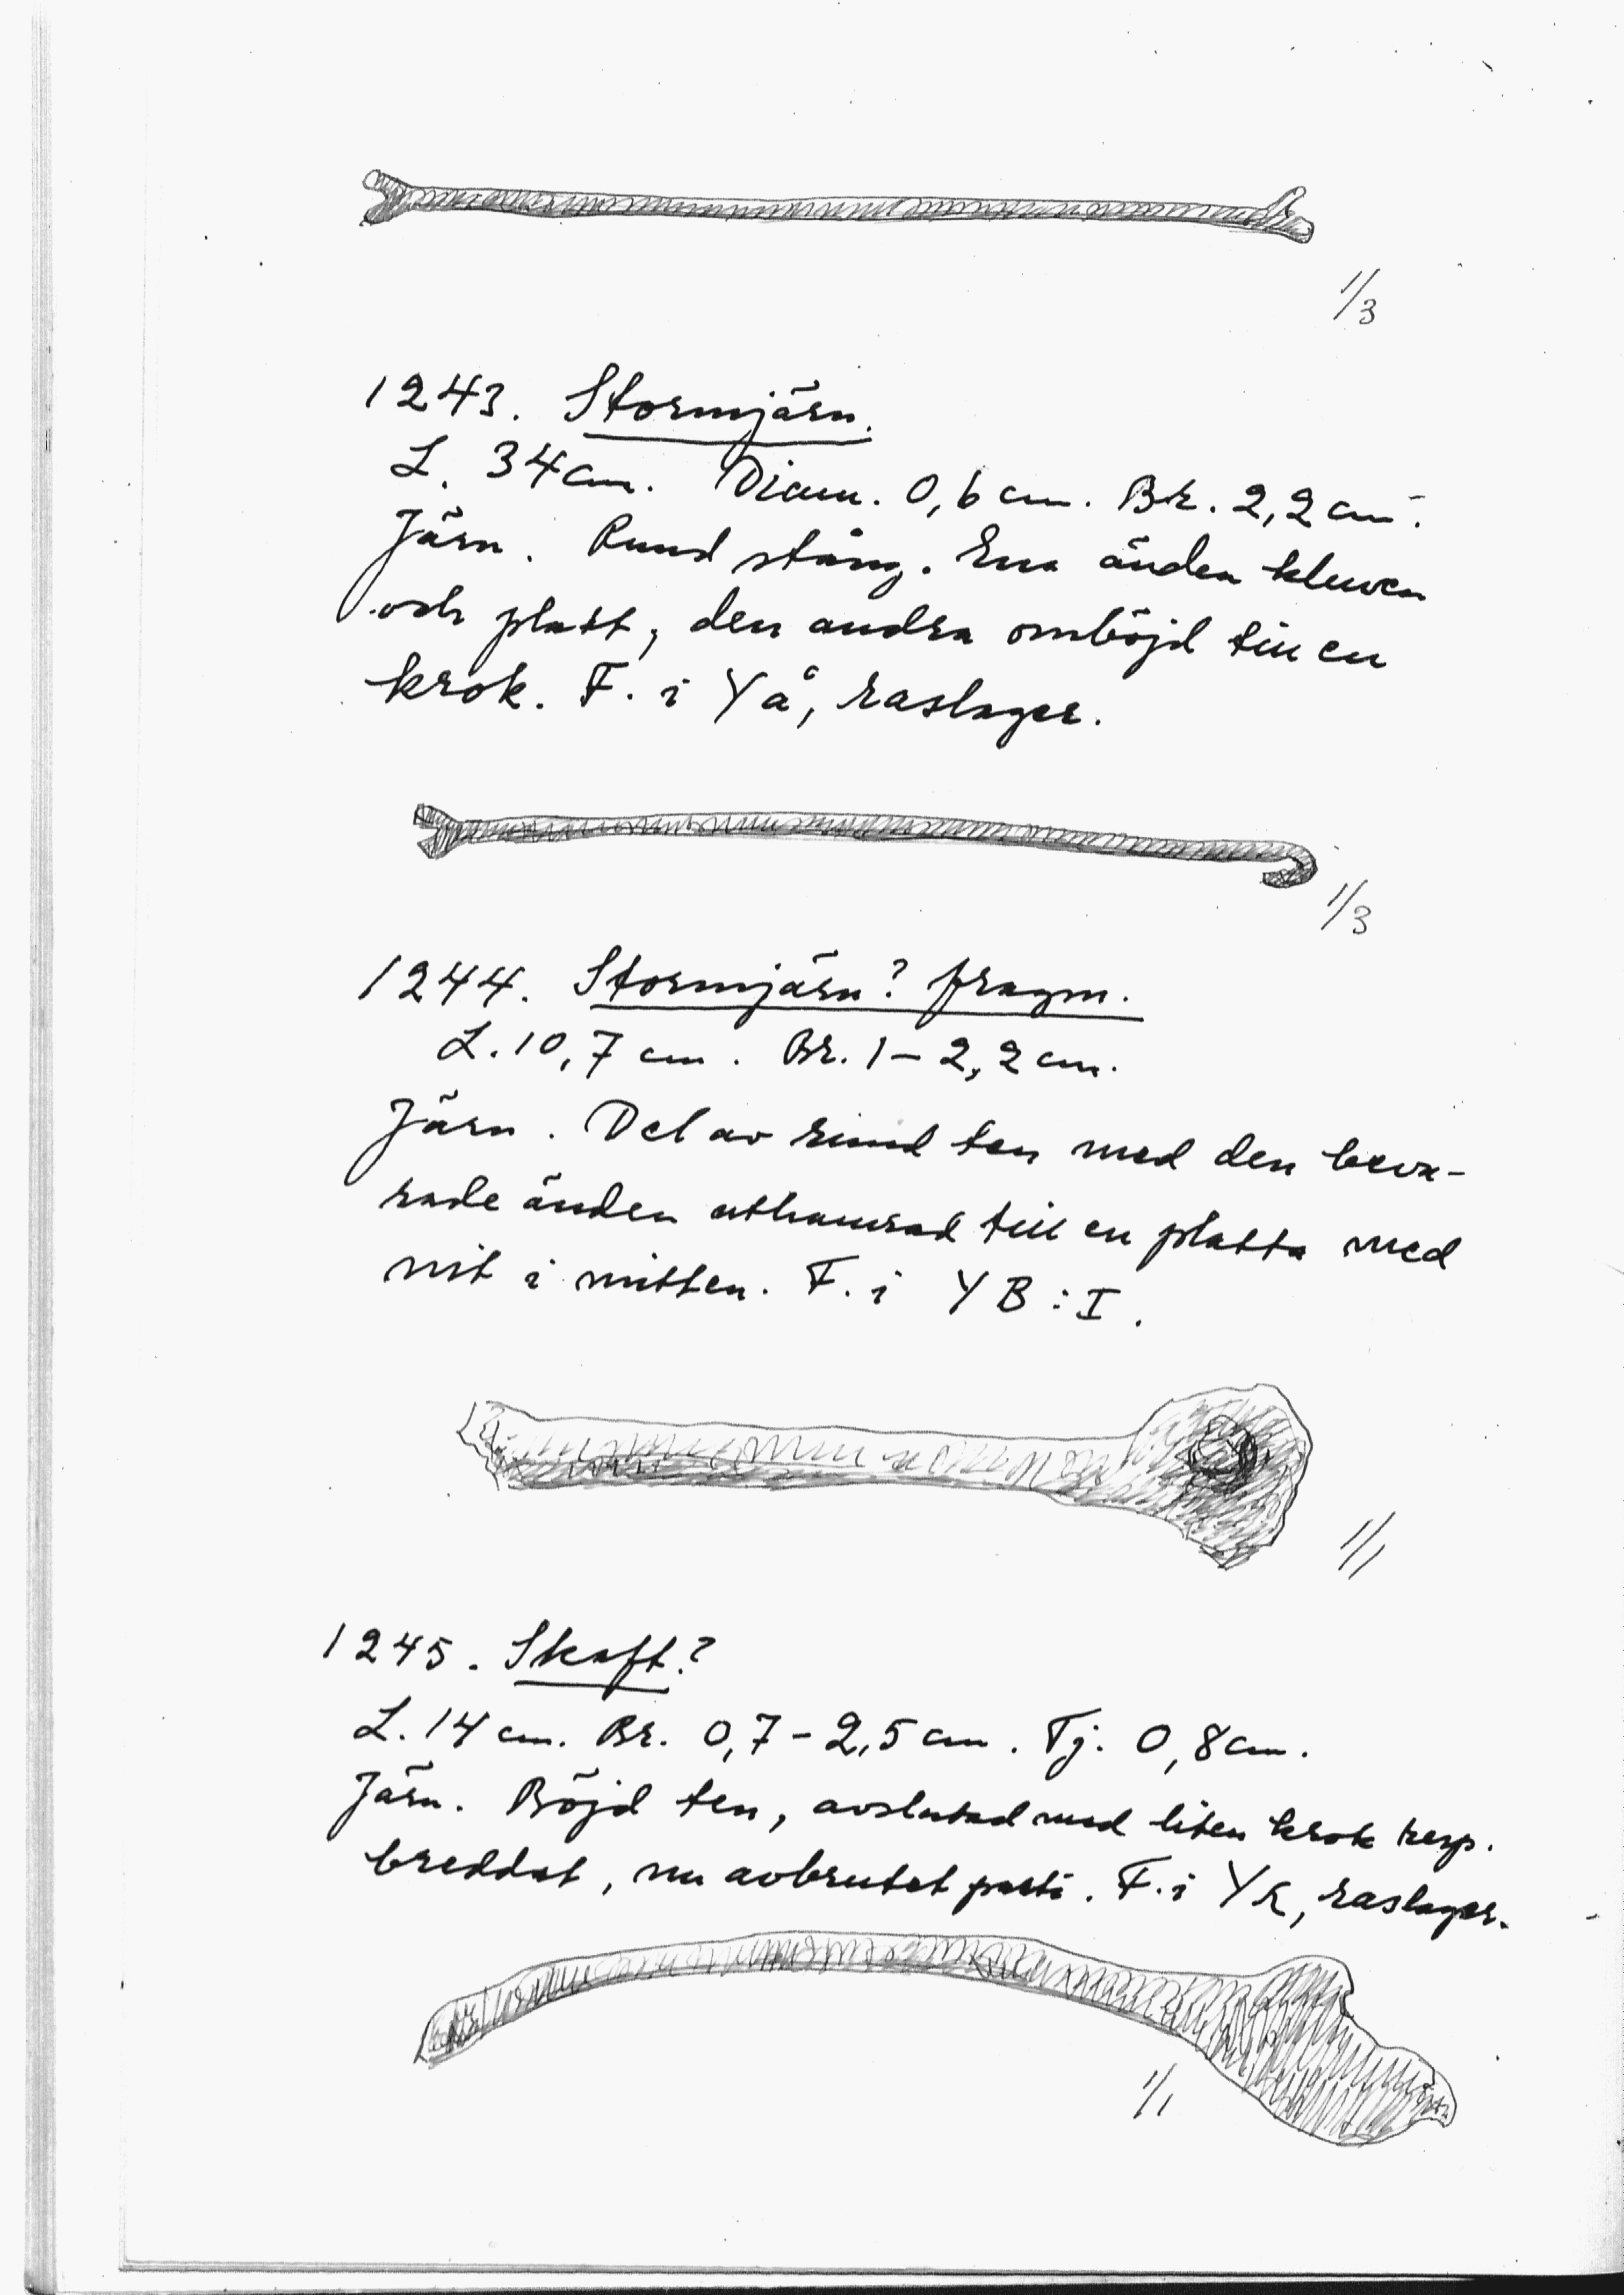 1/3
1243. Stormjärn.
L. 34 cm. Diam. 0,6 cm. Br. 2,2 cm.
Järn. Rund stång. Ena änden kluven
och platt, den andra ombojd till en
krok. F. i Yå, raslager.
1/3
1244. Stormjärn? fragm.
L. 10,7 cm. Br. 1-2,2 cm.
Järn. Del av rund ten med den beva-
rade änden uthamrad till en platta med
nit i mitten. F. i YB:I.
1/1
1245. Skaft?
L. 14 cm. Br. 0,7-2,5 cm. Tj. 0,8 cm.
Järn. Böjd ten, avslutad med liten krok resp.
breddat, nu avbrutet parti. F. i YR, raslager.
1/1